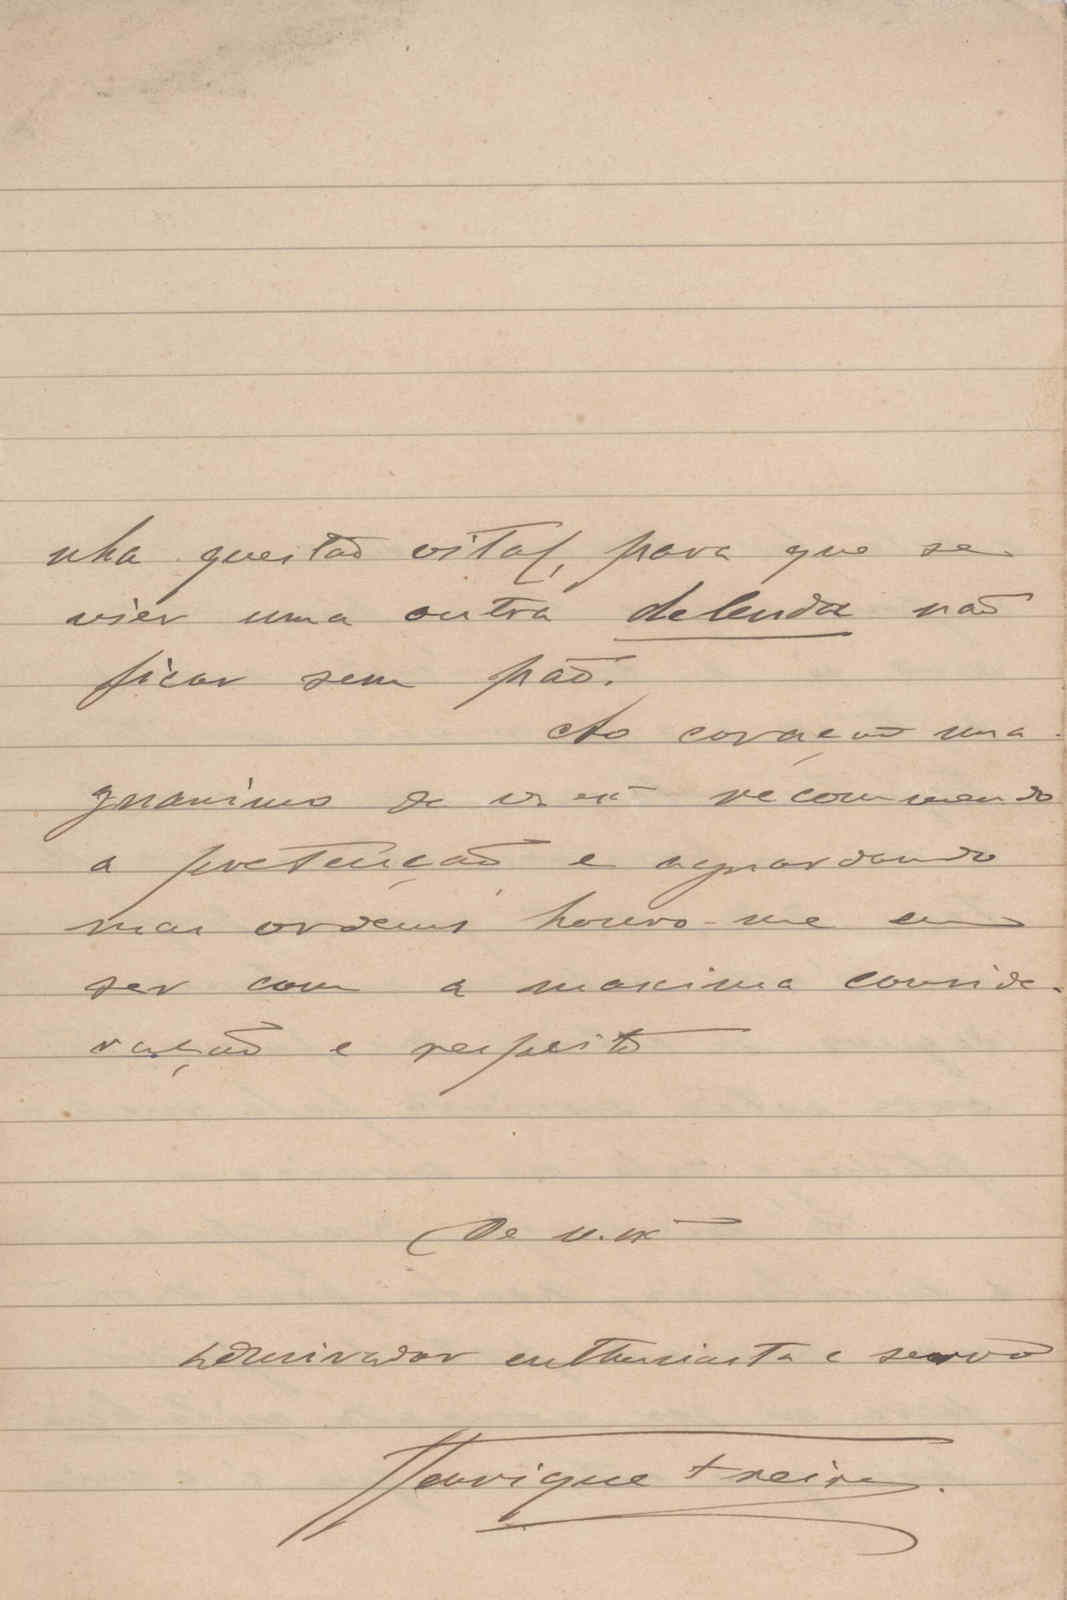 nha questão vital, para que se
vier uma outra delenda não
ficar sem pão.
Ao coração ma-
gnanimo de v. exª recommendo
a pretenção e aguardando
mas ordens honro-me em
ser com a maxima conside-
ração e respeito
De v. exª
admirador enthusiasta e servo
Henrique Freire.